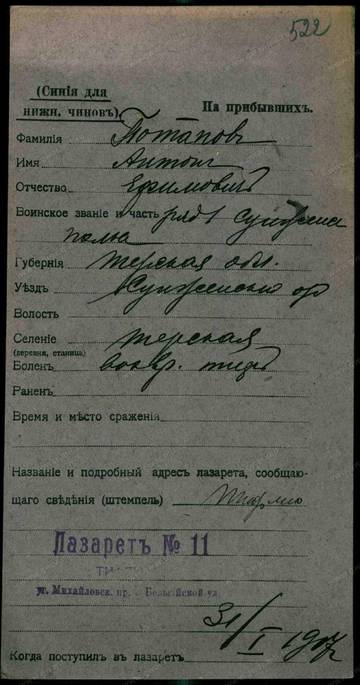 522
(Синія для
нижн. чиновъ)
На прибывшихъ.
Фамилія Потаповъ
Имя Антонъ
Отчество Ефимовичъ
Воинское званіе и часть ряд 1 Сунженс
полка
Губернія Терская обл.
Уѣздъ Сунженскій
Волость
Селеніе Терская
(деревня, станица)
Боленъ
Раненъ
Время и мѣсто сраженія
Названіе и подробный адресъ лазарета, сообщаю-
щаго свѣдѣнія (штемпель) Тифлис
Лазаретъ № 11
уг. Михайловск. пр. Бельгійской ул.
31/I 1917
Когда поступилъ въ лазаретъ